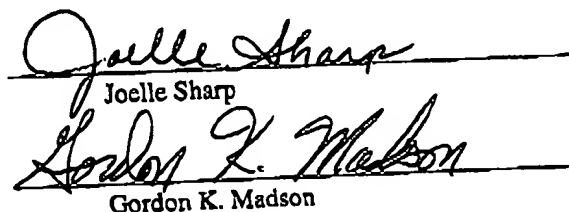 Joelle Sharp
Joelle Sharp
Gordon K. Madson
Gordon K. Madson